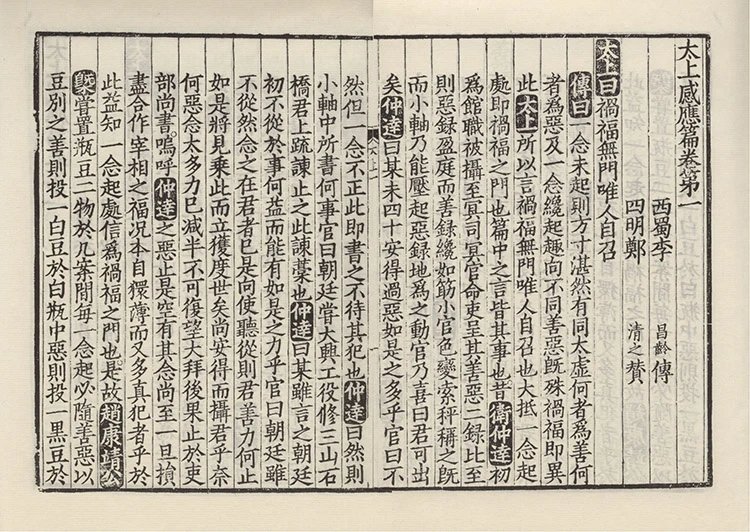 太上感應篇卷第一
西蜀李昌齡傳
四明鄭清之贊
太上曰禍福無門唯人自召
傳曰一念未起則方寸湛然有同太虛何者爲善何
者爲惡及一念纔起趣向不同善惡既殊禍福即異
此太上所以言禍福無門唯人自召也大抵一念起
處即禍福之門也篇中之言皆其事也昔衛仲達初
爲館職被攝至冥司冥官命吏呈其善惡二録比至
則惡録盈庭而善録纔如筯小官色變索秤稱之既
而小軸乃能壓起惡録地爲之動官乃喜曰君可出
矣仲達曰某未四十安得過惡如是之多乎官曰不
然但一念不正此即書之不待其犯也仲達曰然則
小軸中所書何事官曰朝廷嘗大興工役修三山石
橋君上疏諌止之此諌藳也仲達曰某雖言之朝廷
初不從於事何益而能有如是之力乎官曰朝廷雖
不從然念之在君者已是向使聽從則君善力何止
如是將見乗此而立獲度世矣尚安得而攝君乎奈
何惡念太多力已减半不可復望大拜後果止於吏
部尚書嗚呼仲達之惡止是空有其念尚至一旦損
盡合作宰相之福况本自獧薄而又多真犯者乎於
此益知一念起處信爲禍福之門也是故趙康靖公
槩嘗置瓶豆二物於几案間毎一念起必隨善惡以
豆別之善則投一白豆於白瓶中惡則投一黒豆於